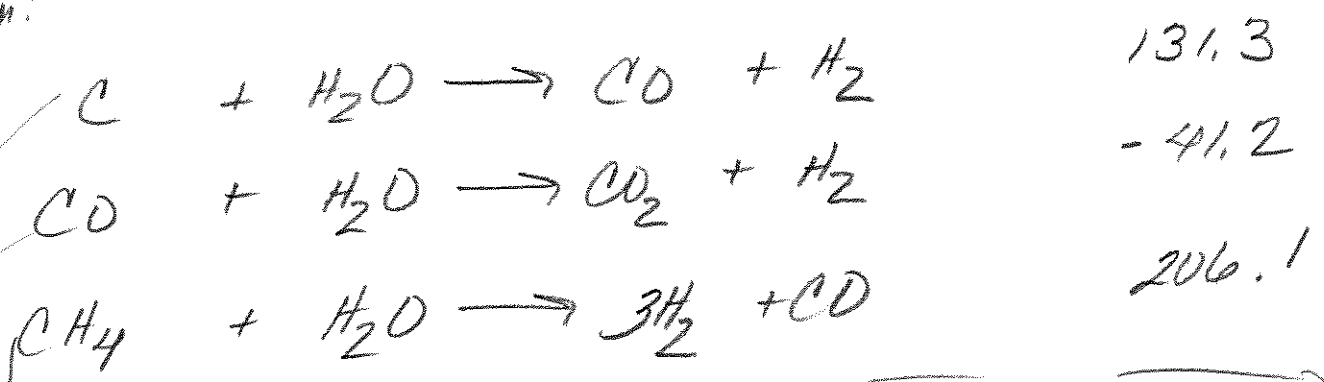 C + H₂O → CO + H₂ 131.3
CO + H₂O → CO₂ + H₂ - 41.2
CH₄ + H₂O → 3H₂ + CO 206.1